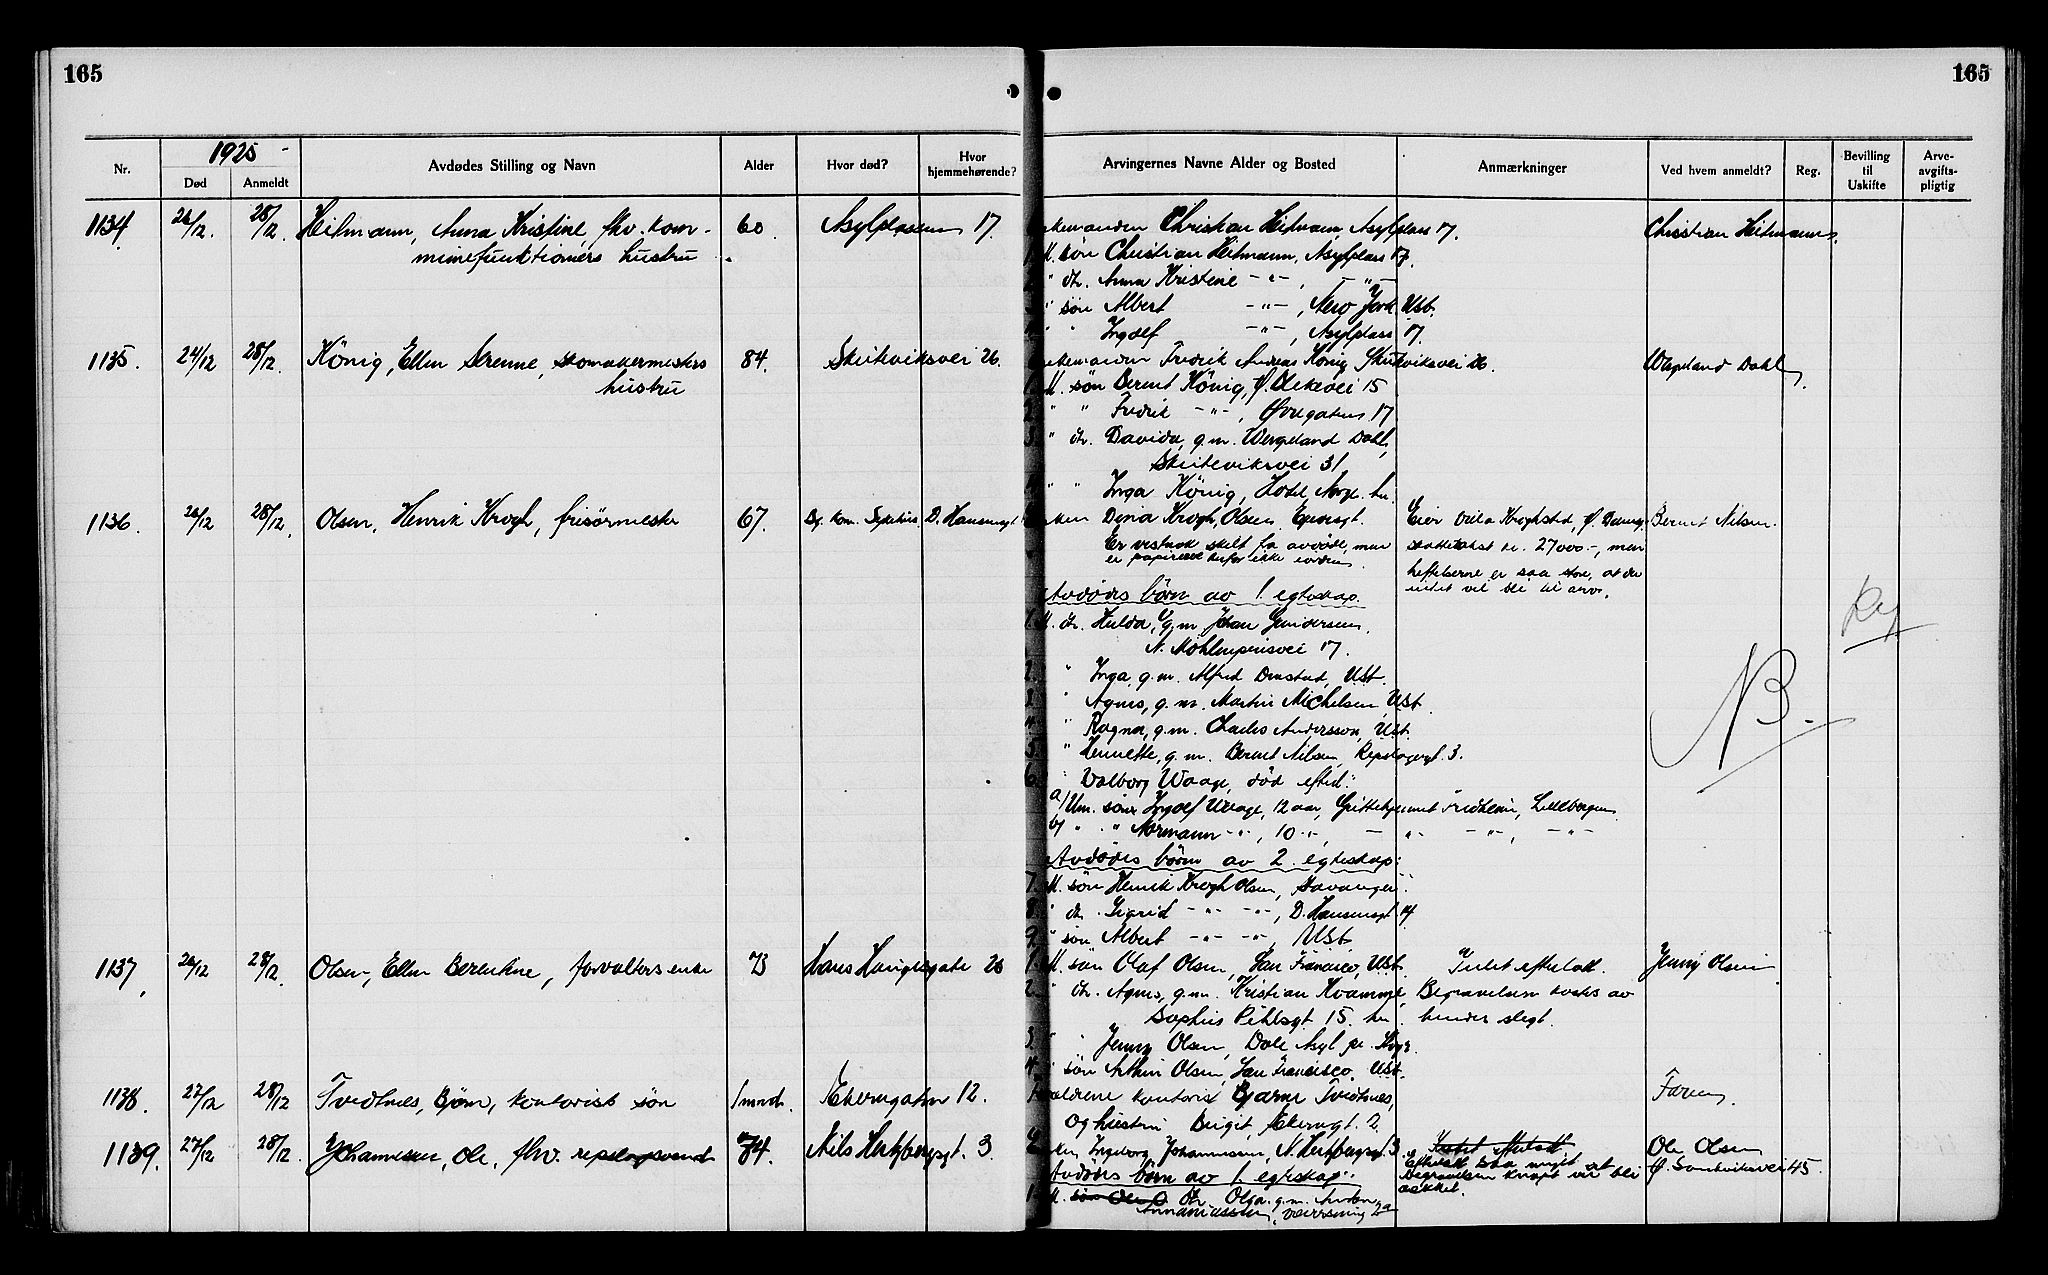 165
165
Nr.
1925
Død
Anmeldt
Avdødes Stilling og Navn
Alder
Hvor død?
Hvor hjemmehørende?
Arvingernes Navne Alder og Bosted
Anmærkninger
Ved hvem anmeldt?
Reg.
Bevilling til Uskifte
Arve-avgifts-pligtig
1134 26/12. 28/12. Heitmann, Anna Kristine, fhv. kom-
munefunktionærs hustru.
60. Asylplassen 17.
Enkemanden Christian Heitmann, Asylplass 17.
M. søn Christian Heitmann, Asylplass 17.
" dtr. Anna Kristine -"-, -"-
" søn Albert -"-, New York Ust.
" " Ingolf -"-, Asylplass 17.
Christian Heitmann.
1135. 24/12 28/12. König, Ellen Serenne, skomakermesters
hustru
84. Skuteviksvei 26.
Enkemanden Fredrik Andreas König Skuteviksvei 26.
1. M. søn Bernt König, Ø. Blekevei 15
2. " " Fredrik -"-, Øvregaten 17
3. " dtr. Davida, g.m. Wergeland Dahl,
Skuteviksvei 31
4. " " Inga König, Hotel Norge. hr.
Wergeland Dahl.
1136. 26/12 28/12. Olsen, Henrik Krogh, frisørmester
67. By. kom. Sykehus. D. Hansensgt.
Enken Dina Krogh Olsen, Engensgt.
Er vistnok skilt fra avdøde, men
er papirene derfor ikke iorden.
Eier Villa Kroghsted,
skattetakst kr. 27000.-, men
heftelserne er saa store, at der
intet vil bli til arv.
Bernt Nilsen.
Avdødes børn av 1. egteskap.
1. M. dtr. Hulda, g.m. Johan Gundersen,
N. Møhlenprisvei 17.
2. " Inga, g.m. Alfred Ust.
3. " Agnes, g.m. Martin Michelsen, Ust.
4. " Ragna, g.m. Charles Andersson, Ust.
5. " Henriette, g.m. Bernt Nilsen, Repslagergt. 3.
6. " Valborg Waage, død efterl.:
a/ Um. søn Ingolf Waage, 12 aar, Guttehjemmet Fridheim, Lillebergen
b/ " " Normann -"-, 10 -"-, -"- -"-, -"-
Avdødes børn av 2. egteskap:
7. M. søn Henrik Krogh Olsen, Stavanger.
8. " dtr. Sigrid -"- -"-, D. Hansensgt. 14
9. " søn Albert -"- -"-, Ust
NB.-
1137. 26/12 28/12. Olsen, Ellen Berentine, forvalters enke
73 Hans Haugesgate 26
1. M. søn Olaf Olsen, San Francisco, Ust.
2. " dtr. Agnes, g.m. Kristian Kvamme,
Sophus Pihlsgt. 15. hr.
3. " " Jenny Olsen, Dale Asyl pr.
4. " søn Arthur Olsen, San Francisco, Ust.
Intet efterlatt.
Begravelsen kostes av
hendes slegt.
Jenny Olsen
1138. 27/12 28/12 Tvedtnes, Bjørn, kontorist søn
1 mnd. Ekrengaten 12.
Forældrene kontorist Bjarne Tvedtnes,
og hustru Birgit, Ekrengt. 2.
Faren.
1139. 27/12 28/12. Johannesen, Ole, fhv. repslagersvend
74. Nils Hertzbergsgt. 3.
Enken, Ingeborg Johannesen, N. Hertzbergsgt. 3
Avdødes børn av 1. egteskap:
1. M. søn Ole O dtr. Olga, g.m. Anton
Annaniassen, 2a
Intet efterlatt
Efterlatt saa meget at
Begravelsen knapt vil bli
dækket.
Ole Olsen
Ø. Sandviksvei 45.